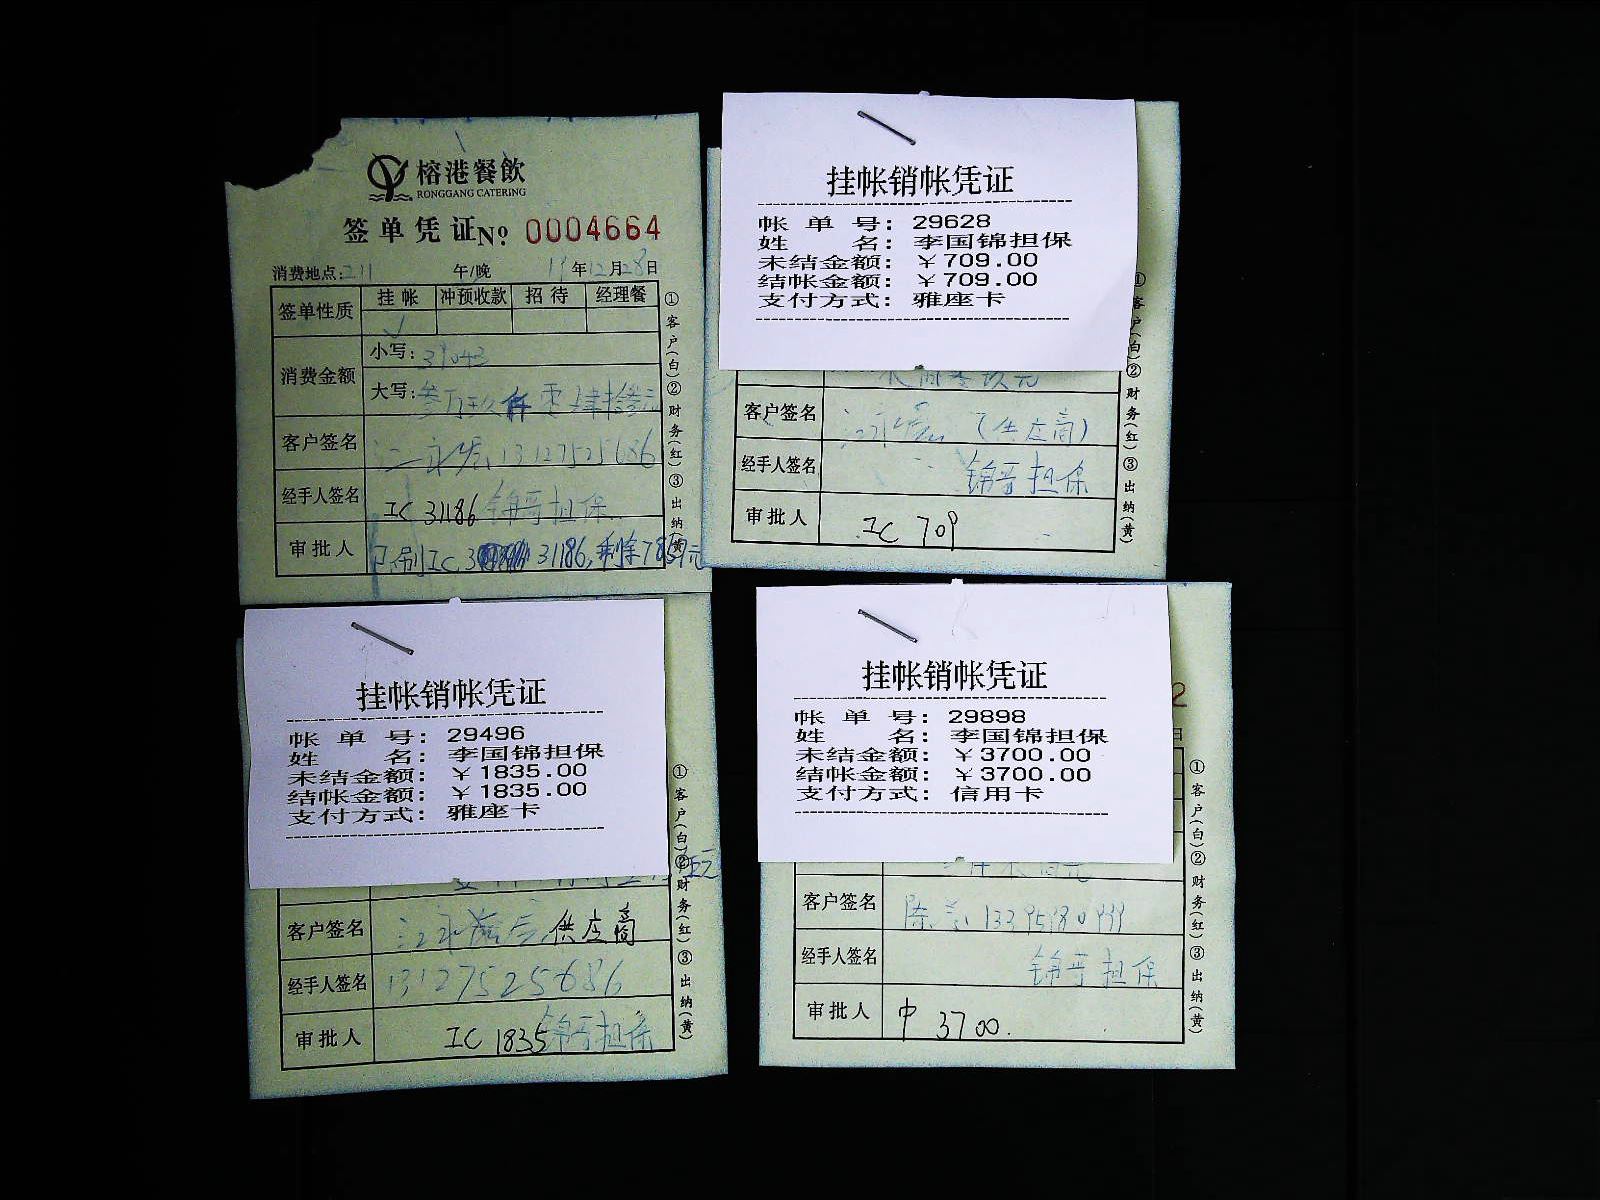 榕港餐飲
RONGGANG CATERING
签单凭证 № 0004664
消费地点: 211 午/晚 19年12月28日
签单性质 挂帐 冲预收款 招待 经理餐
√
消费金额 小写: 39043
大写: 叁万玖仟零肆拾叁元
客户签名 13127525686
经手人签名 IC 31186 锦哥担保
审批人 已刷IC 31186,剩余7857元
①客户(白)②财务(红)③出纳(黄)
挂帐销帐凭证
帐单号: 29628
姓名: 李国锦担保
未结金额: ¥709.00
结帐金额: ¥709.00
支付方式: 雅座卡
客户签名 (供应商)
经手人签名 锦哥担保
审批人 IC 709
①客户(白)②财务(红)③出纳(黄)
挂帐销帐凭证
帐单号: 29496
姓名: 李国锦担保
未结金额: ¥1835.00
结帐金额: ¥1835.00
支付方式: 雅座卡
客户签名 供应商
经手人签名 13127525686
审批人 IC 1835 锦哥担保
①客户(白)②财务(红)③出纳(黄)
2
日
挂帐销帐凭证
帐单号: 29898
姓名: 李国锦担保
未结金额: ¥3700.00
结帐金额: ¥3700.00
支付方式: 信用卡
客户签名 陈
经手人签名 锦哥担保
审批人 中 3700.
①客户(白)②财务(红)③出纳(黄)